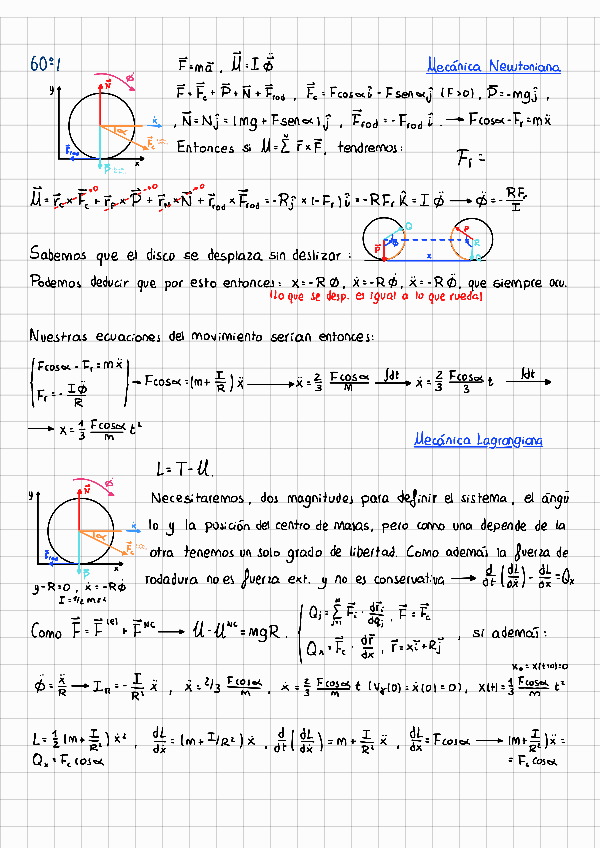 60:1
F⃗=ma⃗ , M⃗=I ϕ̈
Mecánica Newtoniana
F⃗=F⃗c+P⃗+N⃗+F⃗rod , F⃗c=Fcosα î - Fsenα ĵ (F>0), P⃗=-mg ĵ ,
, N⃗=N ĵ=(mg+Fsenα) ĵ , F⃗rod=-Frod î. → Fcosα-Fr=mẍ
Entonces si M⃗=∑ r⃗×F⃗, tendremos:
Fr =
y N⃗ ϕ̈ ẋ α F⃗c F⃗rod P⃗ x
M⃗=r⃗c×F⃗c+r⃗P×P⃗+r⃗N×N⃗+r⃗rod×F⃗rod=-Rĵ×(-Fr)î=-RFr k̂=I ϕ̈ → ϕ̈=-RFr/I
Sabemos que el disco se desplaza sin deslizar:
P Q ϕ x P R Q
Podemos deducir que por esto entonces: x=-Rϕ, ẋ=-Rϕ̇, ẍ=-Rϕ̈, que siempre ocu.
(Lo que se desp. es igual a lo que rueda)
Nuestras ecuaciones del movimiento serían entonces:
Fcosα-Fr=mẍ
Fr=-Iϕ̈/R
→ Fcosα=(m+I/R)ẍ → ẍ=2/3 Fcosα/M ∫dt → ẋ=2/3 Fcosα/3 t ∫dt →
→ x=1/3 Fcosα/m t²
Mecánica Lagrangiana
L=T-U.
y N⃗ ϕ̈ ẋ α F⃗c F⃗rod P⃗ x
Necesitaremos, dos magnitudes para definir el sistema, el ángu
lo y la posición del centro de masas, pero como una depende de la
otra tenemos un solo grado de libertad. Como además la fuerza de
rodadura no es fuerza ext. y no es conservativa → d/dt(dL/dẋ)-dL/dx=Qx
y-R=0 , ẋ=-Rϕ̇
I=1/2 mR²
Como F⃗=F⃗⁽ᵉ⁾+F⃗ᴺᶜ → U-Uᴺᶜ=mgR.
Qj=∑ F⃗i · dr⃗i/dqj , F⃗=F⃗c
Qx=F⃗c · dr⃗/dx , r⃗=xî+Rĵ
, si además:
x₀=x(t=0)=0
ϕ̈=ẍ/R → IR=-I/R² ẍ , ẍ=2/3 Fcosα/m , ẋ=2/3 Fcosα/m t (Vx(0)=ẋ(0)=0), x(t)=1/3 Fcosα/m t²
L=1/2(m+I/R²)ẋ² , dL/dẋ=(m+I/R²)ẋ , d/dt(dL/dẋ)=m+I/R² ẍ , dL/dx=Fcosα → (m+I/R²)ẍ=
Qx=Fc cosα
=Fc cosα